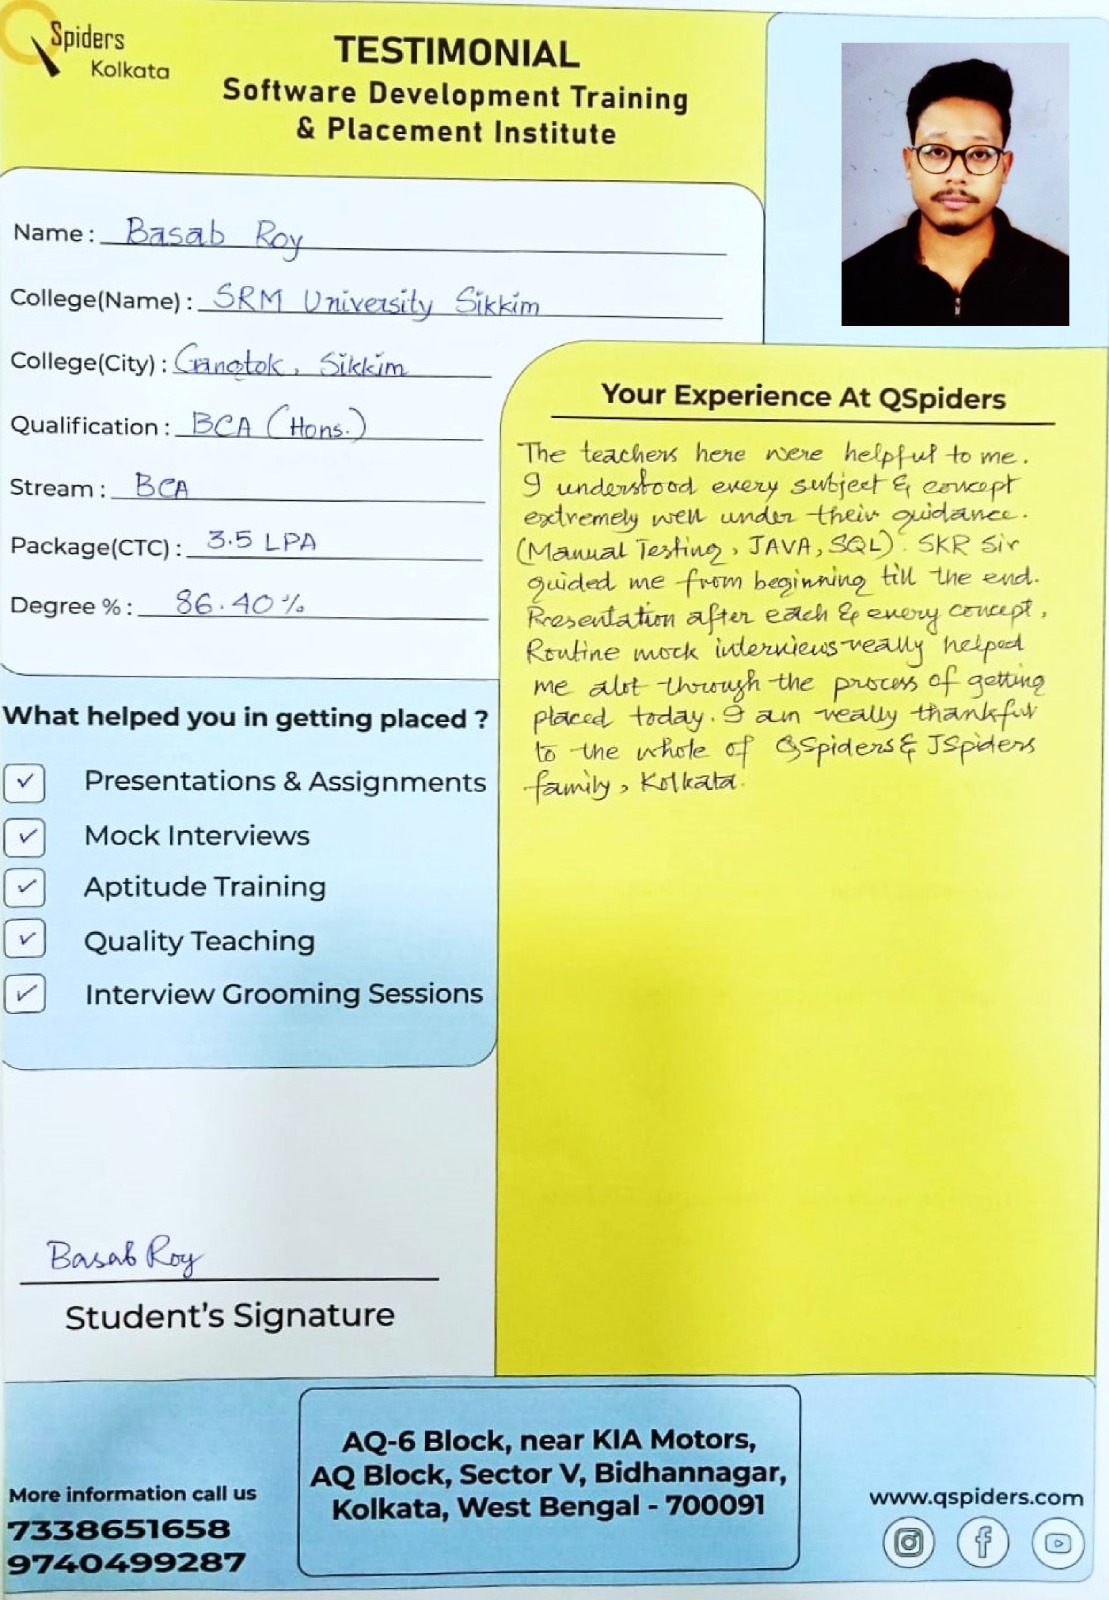 QSpiders
Kolkata
TESTIMONIAL
Software Development Training
& Placement Institute
Name : Basab Roy
College(Name) : SRM University Sikkim
College(City) : Gangtok, Sikkim
Qualification : BCA (Hons.)
Stream : BCA
Package(CTC) : 3.5 LPA
Degree % : 86.40%
What helped you in getting placed ?
✓ Presentations & Assignments
✓ Mock Interviews
✓ Aptitude Training
✓ Quality Teaching
✓ Interview Grooming Sessions
Your Experience At QSpiders
The teachers here were helpful to me.
I understood every subject & concept
extremely well under their guidance.
(Manual Testing, JAVA, SQL). SKR Sir
guided me from beginning till the end.
Presentation after each & every concept,
Routine mock interviews really helped
me alot through the process of getting
placed today. I am really thankful
to the whole of QSpiders & JSpiders
family, Kolkata.
Basab Roy
Student's Signature
More information call us
7338651658
9740499287
AQ-6 Block, near KIA Motors,
AQ Block, Sector V, Bidhannagar,
Kolkata, West Bengal - 700091
www.qspiders.com